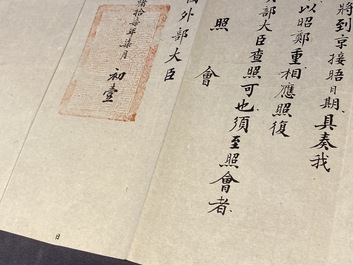 將到京接晤日期具奏我
以昭鄭重相應照復
部大臣查照可也須至照會者
照會
國外部大臣
年柒月初壹
日